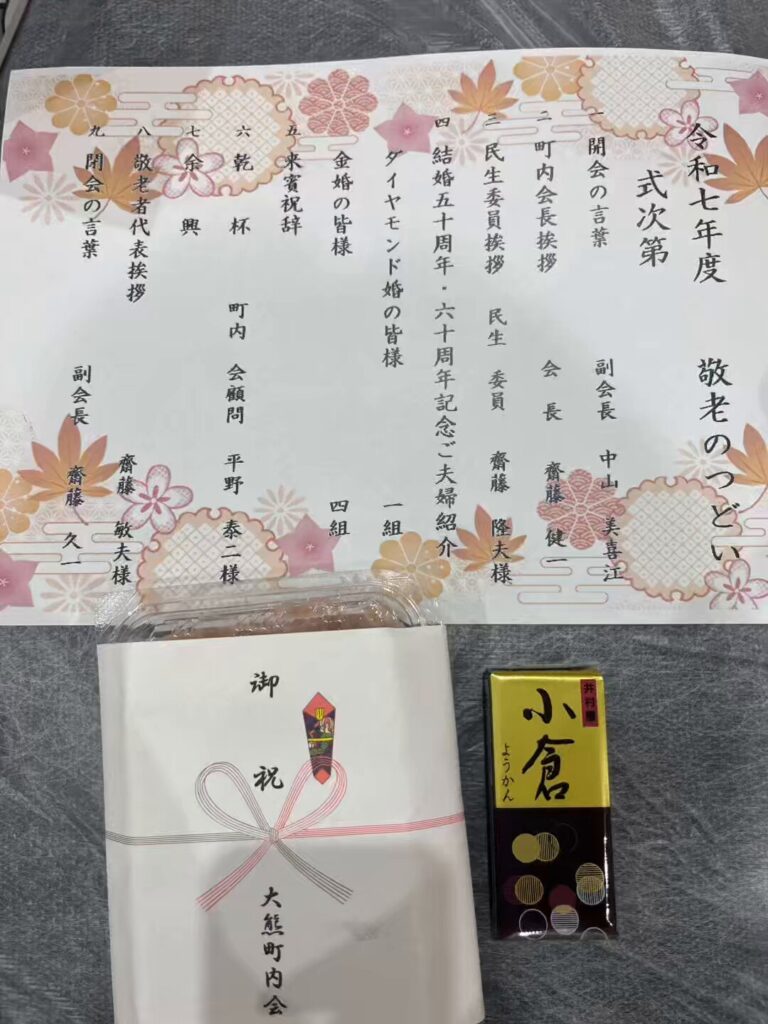 令和七年度 敬老のつどい
式次第
一 開会の言葉 副会長 中山 美喜江
二 町内会長挨拶 会長 齋藤 健一
三 民生委員挨拶 民生 委員 齋藤 隆夫様
四 結婚五十周年・六十周年記念ご夫婦紹介
ダイヤモンド婚の皆様 一組
金婚の皆様 四組
五 来賓祝辞
六 乾杯 町内 会顧問 平野 泰二様
七 余興
八 敬老者代表挨拶 齋藤 敏夫様
九 閉会の言葉 副会長 齋藤 久一
御祝
大熊町内会
井村屋
小倉
ようかん